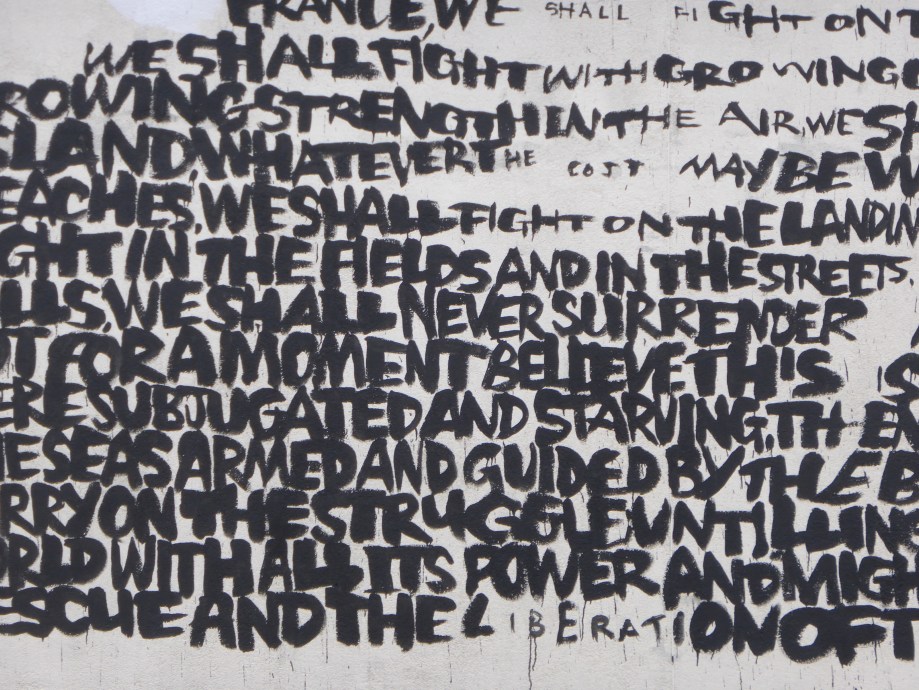 FRANCE WE SHALL FIGHT ON T
WE SHALL FIGHT WITH GROWING
ROWING STRENGTH IN THE AIR, WE SH
SLAND, WHATEVER THE COST MAY BE W
EACHES, WE SHALL FIGHT ON THE LANDIN
GHT IN THE FIELDS AND IN THE STREETS,
LLS, WE SHALL NEVER SURRENDER
OT FOR A MOMENT BELIEVE THIS IS
ERE SUBJUGATED AND STARVING, THEN
HE SEAS ARMED AND GUIDED BY THE B
RRY ON THE STRUGGLE UNTIL, IN
ORLD WITH ALL ITS POWER AND MIGH
ESCUE AND THE LIBERATION OF T